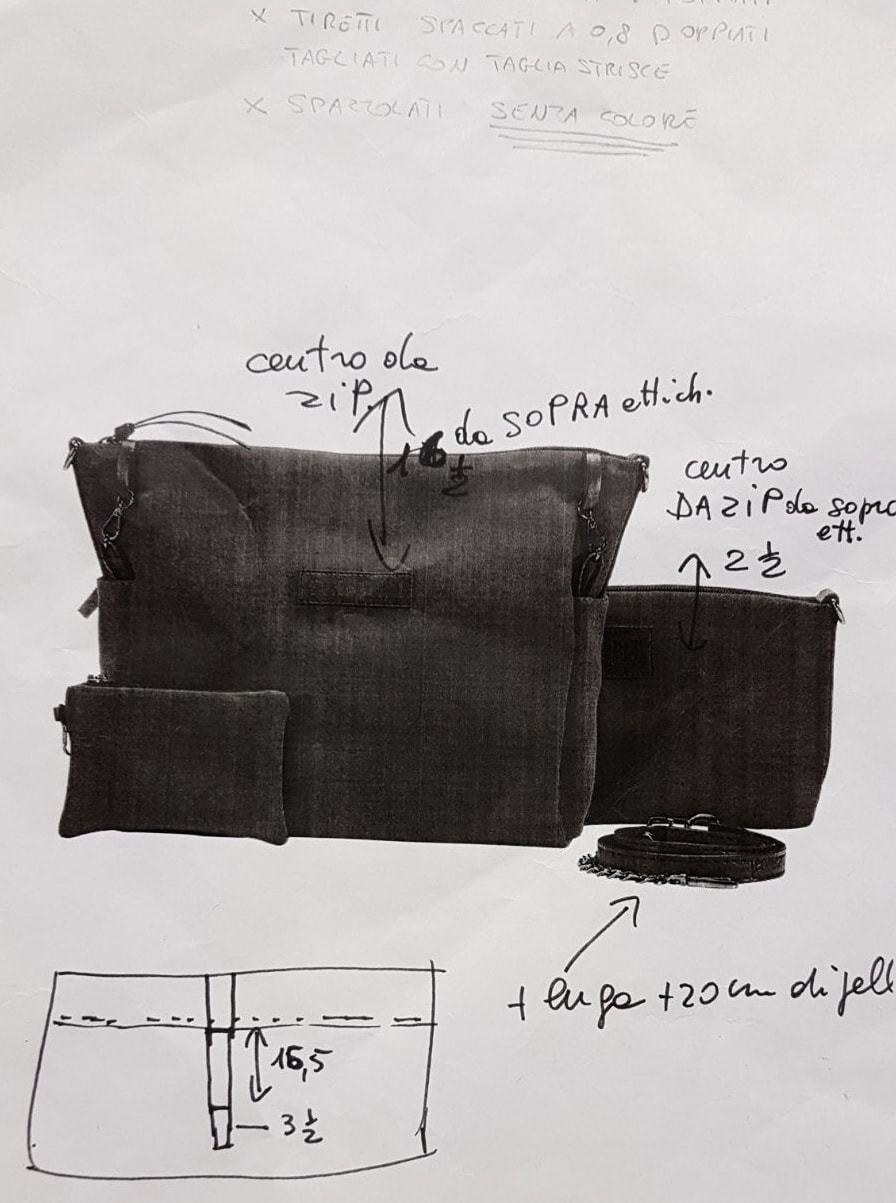 x TIRETTI SPACCATI A 0,8 DOPPIATI
TAGLIATI CON TAGLIA STRISCE
x SPAZZOLATI SENZA COLORE
centro da
ZIP.
da SOPRA ettich.
1 1/2
centro
DA ZIP da sopra
ett.
2 1/2
+ lunga +20 cm di pell
16,5
3 1/2